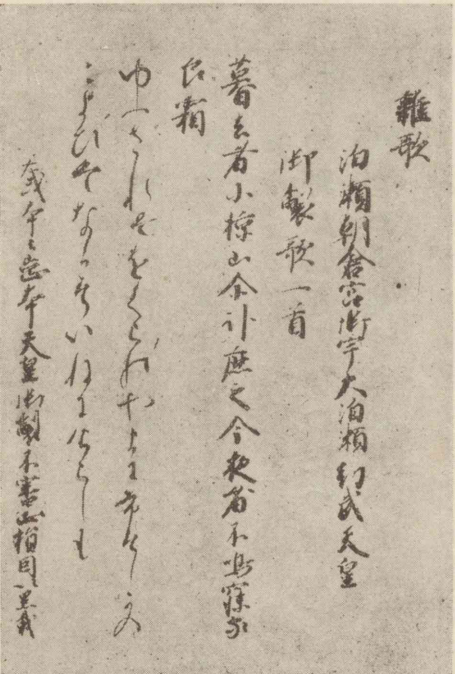 雜歌
泊瀬朝倉宮御宇大泊瀬幼武天皇
御製歌一首
暮去者小椋山尓臥鹿之今夜者不鳴寐家
良霜
ゆふされはをくらのやまにふすしかの
こよひはなかすいねにけらしも
或本云崗本天皇御製不審正指因以累載